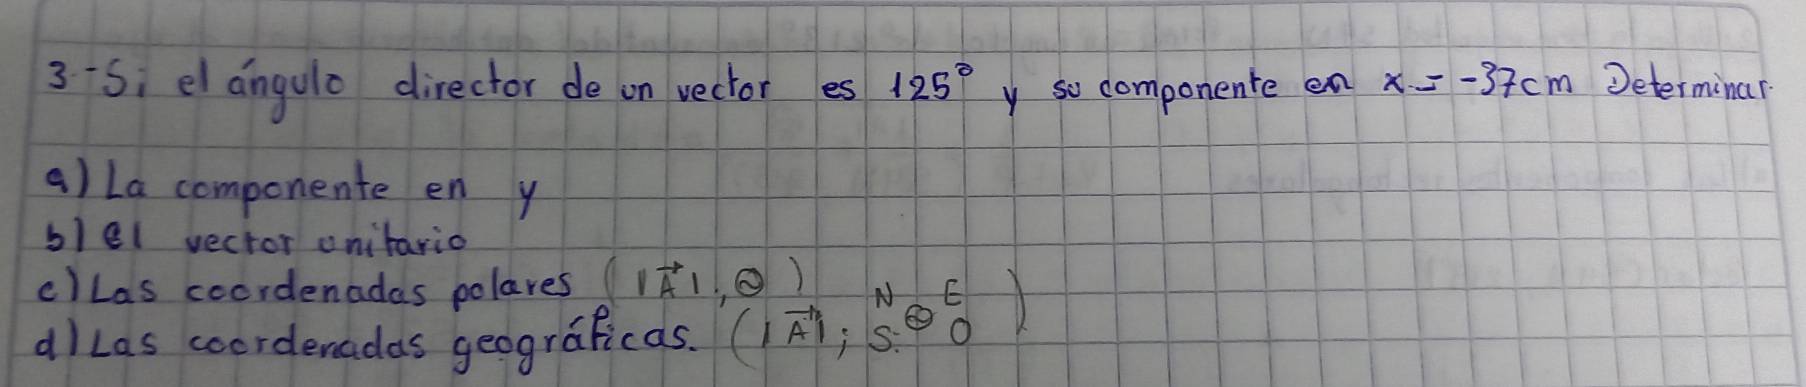 3.-Si el ángulo director de un vector es 125° y su componente en x = -37cm Determinar.
a) La componente en y
b) el vector unitario
c) Las coordenadas polares (|A⃗|, Θ)
d) Las coordenadas geográficas. (|A⃗|; N/S. Θ E/O)